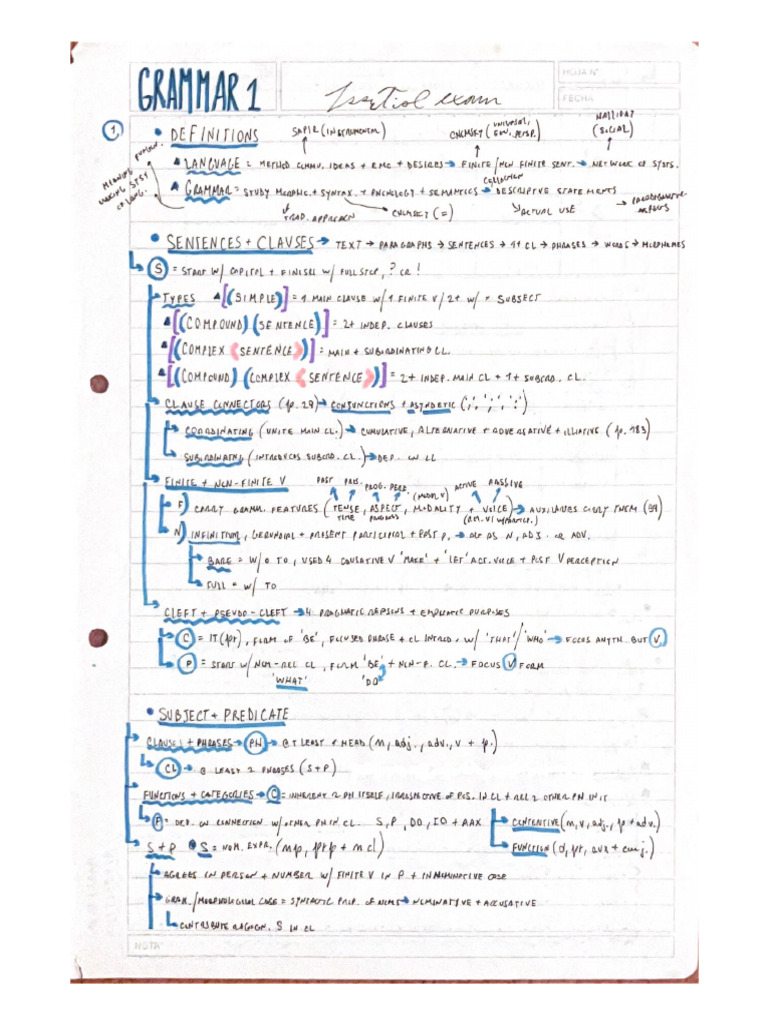 HOJA N°
GRAMMAR 1
exam
FECHA
1. • DEFINITIONS SAPIR (INSTRUMENTAL) CHOMSKY (UNIVERSAL, GEN, PERSP.) HALLIDAY (SOCIAL)
▲ LANGUAGE = METHOD COMMU. IDEAS + EMC + DESIRES → FINITE / NON FINITE SENT. → NETWORK OF SYSTS.
▲ GRAMMAR = STUDY MORPHO. + SYNTAX + PHONOLOGY + SEMANTICS → DESCRIPTIVE STATEMENTS
TRAD. APPROACH CHOMSKY (=) ACTUAL USE
• SENTENCES + CLAUSES → TEXT → PARAGRAPHS → SENTENCES → 1+ CL → PHRASES → WORDS → MORPHEMES
S = START W/ CAPITAL + FINISH W/ FULL STOP, ? OR !
TYPES ▲ [(SIMPLE)] = 1 MAIN CLAUSE W/ 1 FINITE V / 2+ W/ = SUBJECT
▲ [(COMPOUND) (SENTENCE)] = 2+ INDEP. CLAUSES
▲ [(COMPLEX <SENTENCE>)] = MAIN + SUBORDINATING CL.
▲ [(COMPOUND) (COMPLEX <SENTENCE>)] = 2+ INDEP. MAIN CL + 1+ SUBORD. CL.
CLAUSE CONNECTORS (p. 29) → CONJUNCTIONS + ASYNDETIC
COORDINATING (UNITE MAIN CL.) → CUMULATIVE, ALTERNATIVE + ADVERSATIVE + ILLATIVE (p. 183)
SUBORDINATING (INTRODUCES SUBORD. CL.) → DEP. ON CL
FINITE + NON-FINITE V PAST PRES. PROG. PERF. (MODAL V) ACTIVE PASSIVE
F) CARRY GRAMM. FEATURES (TENSE, ASPECT, MODALITY + VOICE) → AUXILIARIES CARRY THEM (99)
TIME
N) INFINITIVE, GERUNDIAL + PRESENT PARTICIPIAL + PAST P. → ACT AS N, ADJ. OR ADV.
BARE = W/O TO, USED 4 CAUSATIVE V 'MAKE' + 'LET' ACT. VOICE + POST V PERCEPTION
FULL = W/ TO
CLEFT + PSEUDO-CLEFT → 4 PRAGMATIC REASONS + EMPHATIC PURPOSES
C = IT (pr), FORM OF 'BE', FOCUSED PHRASE + CL INTROD. W/ 'THAT'/'WHO' → FOCUS ANYTH. BUT V.
P = START W/ NOM-REL CL, FORM 'BE' + NON-F. CL. → FOCUS V FORM
'WHAT' 'DO'
• SUBJECT + PREDICATE
CLAUSES + PHRASES → PH → @ LEAST 1 HEAD (n, adj., adv., v + p.)
CL → @ LEAST 2 PHRASES (S+P)
FUNCTIONS + CATEGORIES → C = INHERENT 2 PH ITSELF, IRRESPECTIVE OF POS. IN CL + REL 2 OTHER PH IN IT
F = DEP. ON CONNECTION W/ OTHER PH IN CL. S, P, DO, IO + AAX CONTENTIVE (n, v, adj., p + adv.)
S + P • S = NOM. EXPR. (np, prp + ncl) FUNCTION (d, pr, aux + conj.)
AGREES IN PERSON + NUMBER W/ FINITE V IN P + IN NOMINATIVE CASE
GRAM./MORPHOLOGICAL CASE = SYNTACTIC PROP. OF NOMS → NOMINATIVE + ACCUSATIVE
CONTRIBUTE RECOGN. S IN CL
NOTA